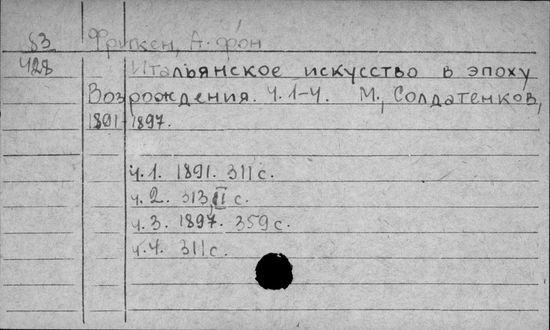 83 Фрикен, А. фон
428 Итальянское искусство в эпоху
Возрождения. Ч. 1-4. М., Солдатенков,
1891-1897.
ч. 1. 1891. 311 с.
ч. 2. 313, II с.
ч. 3. 1897. 359 с.
ч. 4. 311 с.